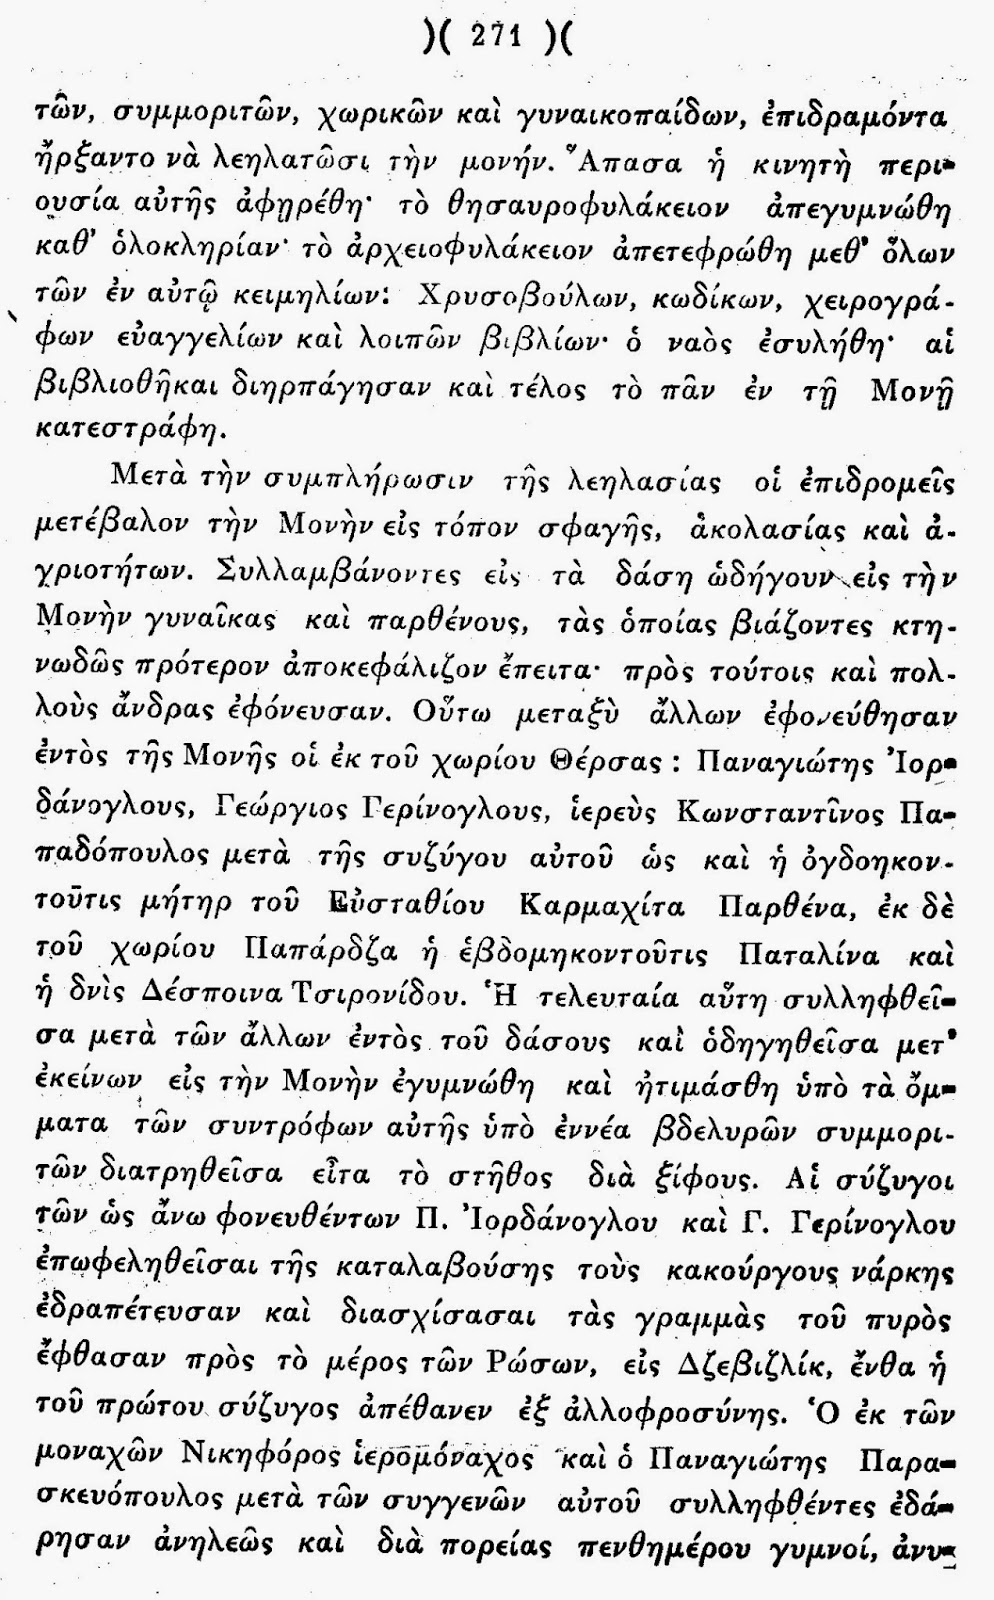 )( 271 )(
τῶν, συμμοριτῶν, χωρικῶν καὶ γυναικοπαίδων, ἐπιδραμόντα
ἤρξαντο νὰ λεηλατῶσι τὴν μονήν. Ἅπασα ἡ κινητὴ περι-
ουσία αὐτῆς ἀφῃρέθη· τὸ θησαυροφυλάκειον ἀπεγυμνώθη
καθ' ὁλοκληρίαν· τὸ ἀρχειοφυλάκειον ἀπετεφρώθη μεθ' ὅλων
τῶν ἐν αὐτῷ κειμηλίων: Χρυσοβούλων, κωδίκων, χειρογρά-
φων εὐαγγελίων καὶ λοιπῶν βιβλίων· ὁ ναὸς ἐσυλήθη· αἱ
βιβλιοθῆκαι διηρπάγησαν καὶ τέλος τὸ πᾶν ἐν τῇ Μονῇ
κατεστράφη.
Μετὰ τὴν συμπλήρωσιν τῆς λεηλασίας οἱ ἐπιδρομεῖς
μετέβαλον τὴν Μονὴν εἰς τόπον σφαγῆς, ἀκολασίας καὶ ἀ-
γριοτήτων. Συλλαμβάνοντες εἰς τὰ δάση ὡδήγουν εἰς τὴν
Μονὴν γυναῖκας καὶ παρθένους, τὰς ὁποίας βιάζοντες κτη-
νωδῶς πρότερον ἀποκεφάλιζον ἔπειτα· πρὸς τούτοις καὶ πολ-
λοὺς ἄνδρας ἐφόνευσαν. Οὕτω μεταξὺ ἄλλων ἐφονεύθησαν
ἐντὸς τῆς Μονῆς οἱ ἐκ τοῦ χωρίου Θέρσας: Παναγιώτης Ἰορ-
δάνογλους, Γεώργιος Γερίνογλους, ἱερεὺς Κωνσταντῖνος Πα-
παδόπουλος μετὰ τῆς συζύγου αὐτοῦ ὡς καὶ ἡ ὀγδοηκον-
τοῦτις μήτηρ τοῦ Εὐσταθίου Καρμαχίτα Παρθένα, ἐκ δὲ
τοῦ χωρίου Παπάρδζα ἡ ἑβδομηκοντοῦτις Παταλίνα καὶ
ἡ δνὶς Δέσποινα Τσιρονίδου. Ἡ τελευταία αὕτη συλληφθεῖ-
σα μετὰ τῶν ἄλλων ἐντὸς τοῦ δάσους καὶ ὁδηγηθεῖσα μετ'
ἐκείνων εἰς τὴν Μονὴν ἐγυμνώθη καὶ ἠτιμάσθη ὑπὸ τὰ ὄμ-
ματα τῶν συντρόφων αὐτῆς ὑπὸ ἐννέα βδελυρῶν συμμορι-
τῶν διατρηθεῖσα εἶτα τὸ στῆθος διὰ ξίφους. Αἱ σύζυγοι
τῶν ὡς ἄνω φονευθέντων Π. Ἰορδάνογλου καὶ Γ. Γερίνογλου
ἐπωφεληθεῖσαι τῆς καταλαβούσης τοὺς κακούργους νάρκης
ἐδραπέτευσαν καὶ διασχίσασαι τὰς γραμμὰς τοῦ πυρὸς
ἔφθασαν πρὸς τὸ μέρος τῶν Ρώσων, εἰς Δζεβιζλίκ, ἔνθα ἡ
τοῦ πρώτου σύζυγος ἀπέθανεν ἐξ ἀλλοφροσύνης. Ὁ ἐκ τῶν
μοναχῶν Νικηφόρος ἱερομόναχος καὶ ὁ Παναγιώτης Παρα-
σκευόπουλος μετὰ τῶν συγγενῶν αὐτοῦ συλληφθέντες ἐδά-
ρησαν ἀνηλεῶς καὶ διὰ πορείας πενθημέρου γυμνοί, ἀνυ-